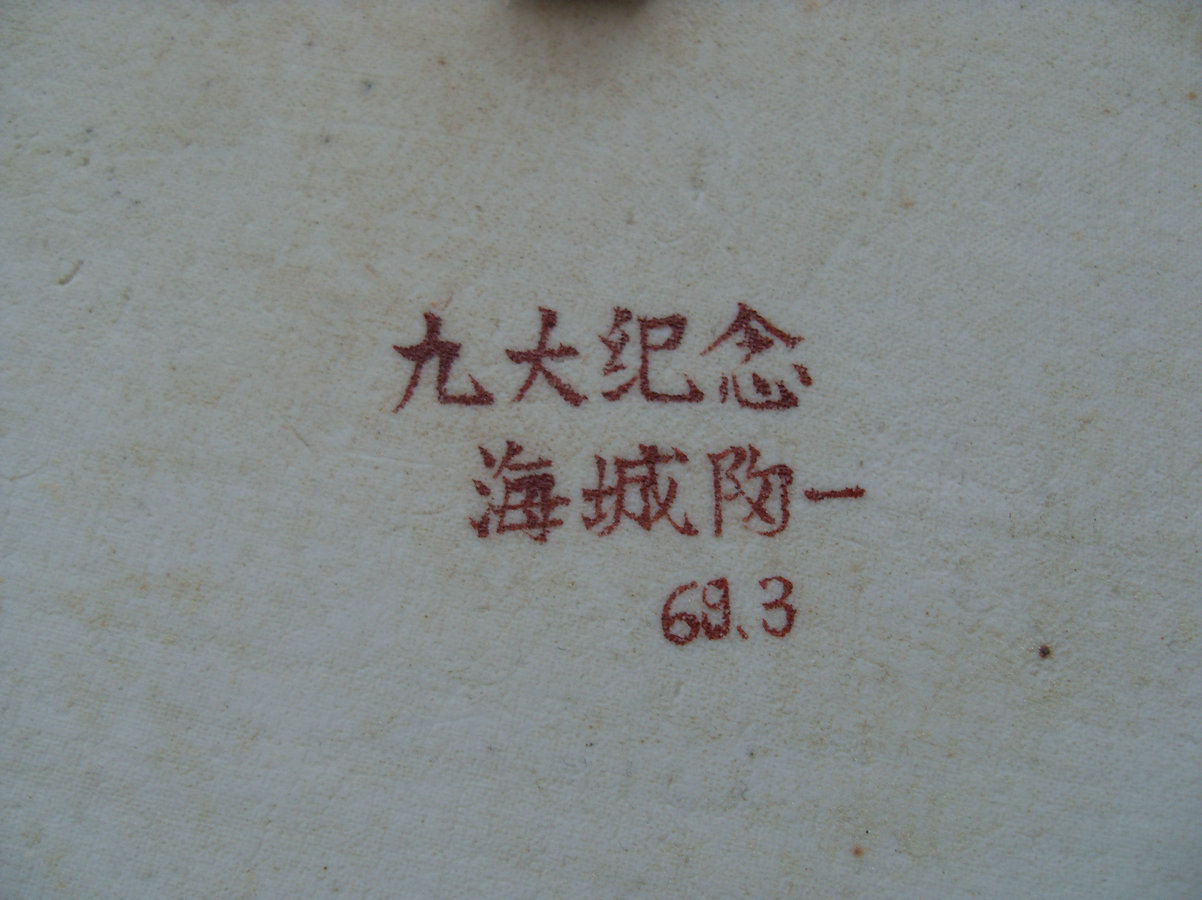 九大纪念
海城陶一
69.3